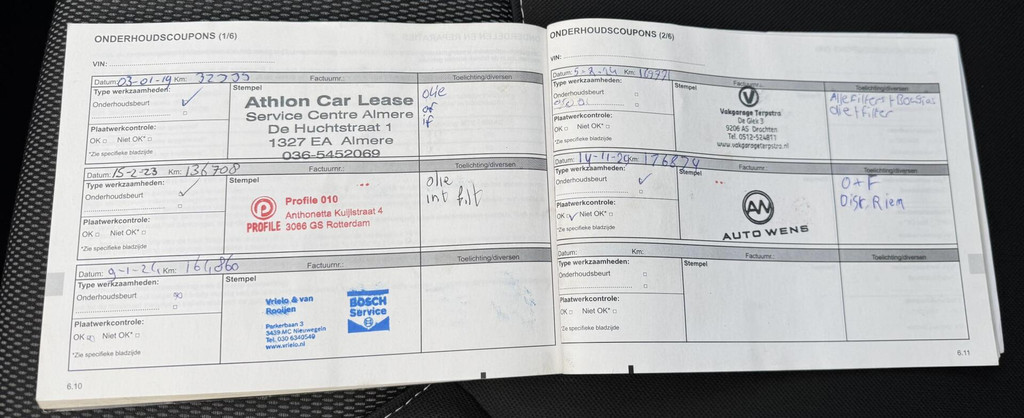 ONDERHOUDSCOUPONS (1/6)
VIN:
Datum: 03-01-19 Km: Factuurnr.: Toelichting/diversen
Type werkzaamheden: Stempel
Onderhoudsbeurt
Plaatwerkcontrole:
OK Niet OK*
*Zie specifieke bladzijde
Athlon Car Lease
Service Centre Almere
De Huchtstraat 1
1327 EA Almere
036-5452069
olie
of
if
Datum: 15-2-23 Km: 136708 Factuurnr.: Toelichting/diversen
Type werkzaamheden: Stempel
Onderhoudsbeurt
Plaatwerkcontrole:
OK Niet OK*
*Zie specifieke bladzijde
PROFILE
Profile 010
Anthonetta Kuijlstraat 4
3066 GS Rotterdam
olie
int filt
Datum: 9-1-24 Km: 164860 Factuurnr.: Toelichting/diversen
Type werkzaamheden: Stempel
Onderhoudsbeurt
Plaatwerkcontrole:
OK Niet OK*
*Zie specifieke bladzijde
Vrielo & van
Rooijen
Parkerbaan 3
3439 MC Nieuwegein
Tel. 030 6340549
www.vrielo.nl
BOSCH
Service
6.10
ONDERHOUDSCOUPONS (2/6)
VIN:
Datum: 5-2-24 Km: Factuurnr.: Toelichting/diversen
Type werkzaamheden: Stempel
Onderhoudsbeurt
Plaatwerkcontrole:
OK Niet OK*
*Zie specifieke bladzijde
Vakgarage Terpstra
De Giek 3
9206 AS Drachten
Tel. 0512-524811
www.vakgarageterpstra.nl
Alle Filters + Bougies
filter
Datum: 14-11-24 Km: 176824 Factuurnr.: Toelichting/diversen
Type werkzaamheden: Stempel
Onderhoudsbeurt
Plaatwerkcontrole:
OK Niet OK*
*Zie specifieke bladzijde
AW
AUTO WENS
O+F
Distr. Riem
Datum: Km: Factuurnr.: Toelichting/diversen
Type werkzaamheden: Stempel
Onderhoudsbeurt
Plaatwerkcontrole:
OK Niet OK*
*Zie specifieke bladzijde
6.11